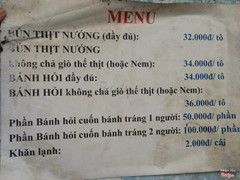 MENU
BÚN THỊT NƯỚNG (đầy đủ): 32.000đ/ tô
BÚN THỊT NƯỚNG
không chả giò thế thịt (hoặc Nem): 34.000đ/ tô
BÁNH HỎI đầy đủ: 34.000đ/ tô
BÁNH HỎI không chả giò thế thịt (hoặc Nem):
36.000đ/ tô
Phần Bánh hỏi cuốn bánh tráng 1 người: 50.000đ/ phần
Phần Bánh hỏi cuốn bánh tráng 2 người: 100.000đ/ phần
Khăn lạnh: 2.000đ/ cái